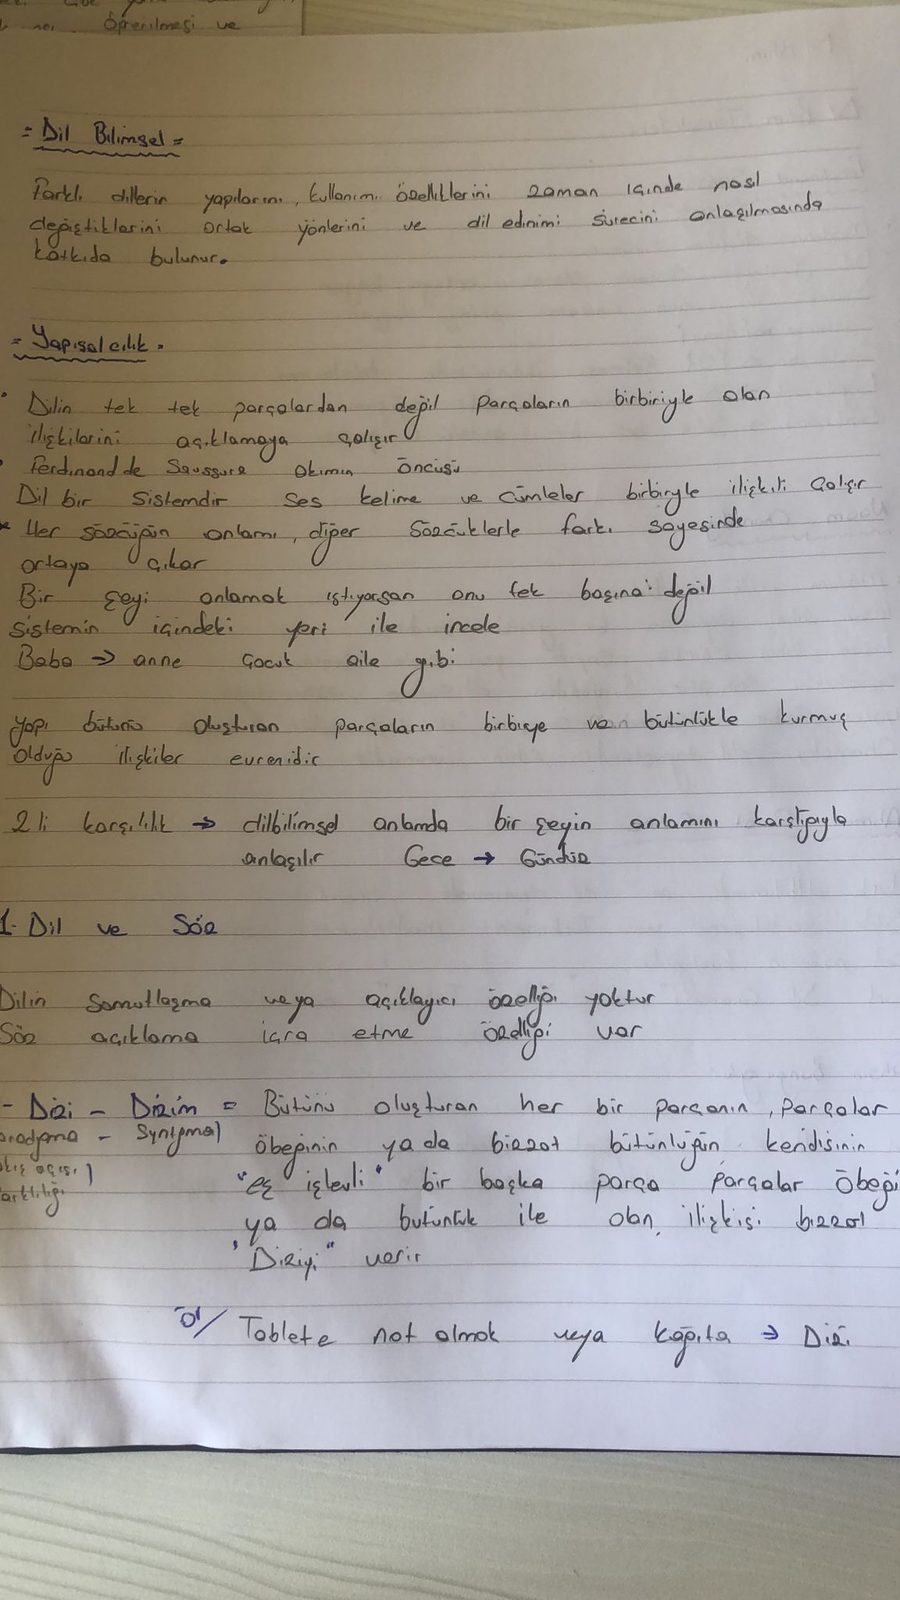 Öğrenilmesi ve
= Dil Bilimsel =
Farklı dillerin yapılarını, kullanım özelliklerini zaman içinde nasıl
değiştiklerini ortak yönlerini ve dil edinimi sürecini anlaşılmasında
katkıda bulunur.
= Yapısalcılık =
• Dilin tek tek parçalardan değil parçaların birbiriyle olan
ilişkilerini açıklamaya çalışır
• Ferdinand de Saussure akımın öncüsü
Dil bir sistemdir ses kelime ve cümleler birbiryle ilişkili çalışır
* Her sözcüğün anlamı, diğer sözcüklerle farkı sayesinde
ortaya çıkar
Bir şeyi anlamak istiyorsan onu tek başına değil
sistemin içindeki yeri ile incele
Baba → anne çocuk aile gibi
Yapı bütünü oluşturan parçaların birbirye ve bütünlükle kurmuş
olduğu ilişkiler evrenidir
2 li karşılık → dilbilimsel anlamda bir şeyin anlamını karşıtlığıyla
anlaşılır Gece → Gündüz
1- Dil ve Söz
Dilin somutlaşma veya açıklayıcı özelliği yoktur
Söz açıklama icra etme özelliği var
- Dizi - Dizim = Bütünü oluşturan her bir parçanın, parçalar
- Syntgma) öbeğinin ya da bizzat bütünlüğün kendisinin
açısı) "eş işlevli" bir başka parça parçalar öbeği
ya da bütünlük ile olan ilişkisi bizzat
"Diziyi" verir
ör/ Tablete not almak veya kağıta → Dizi